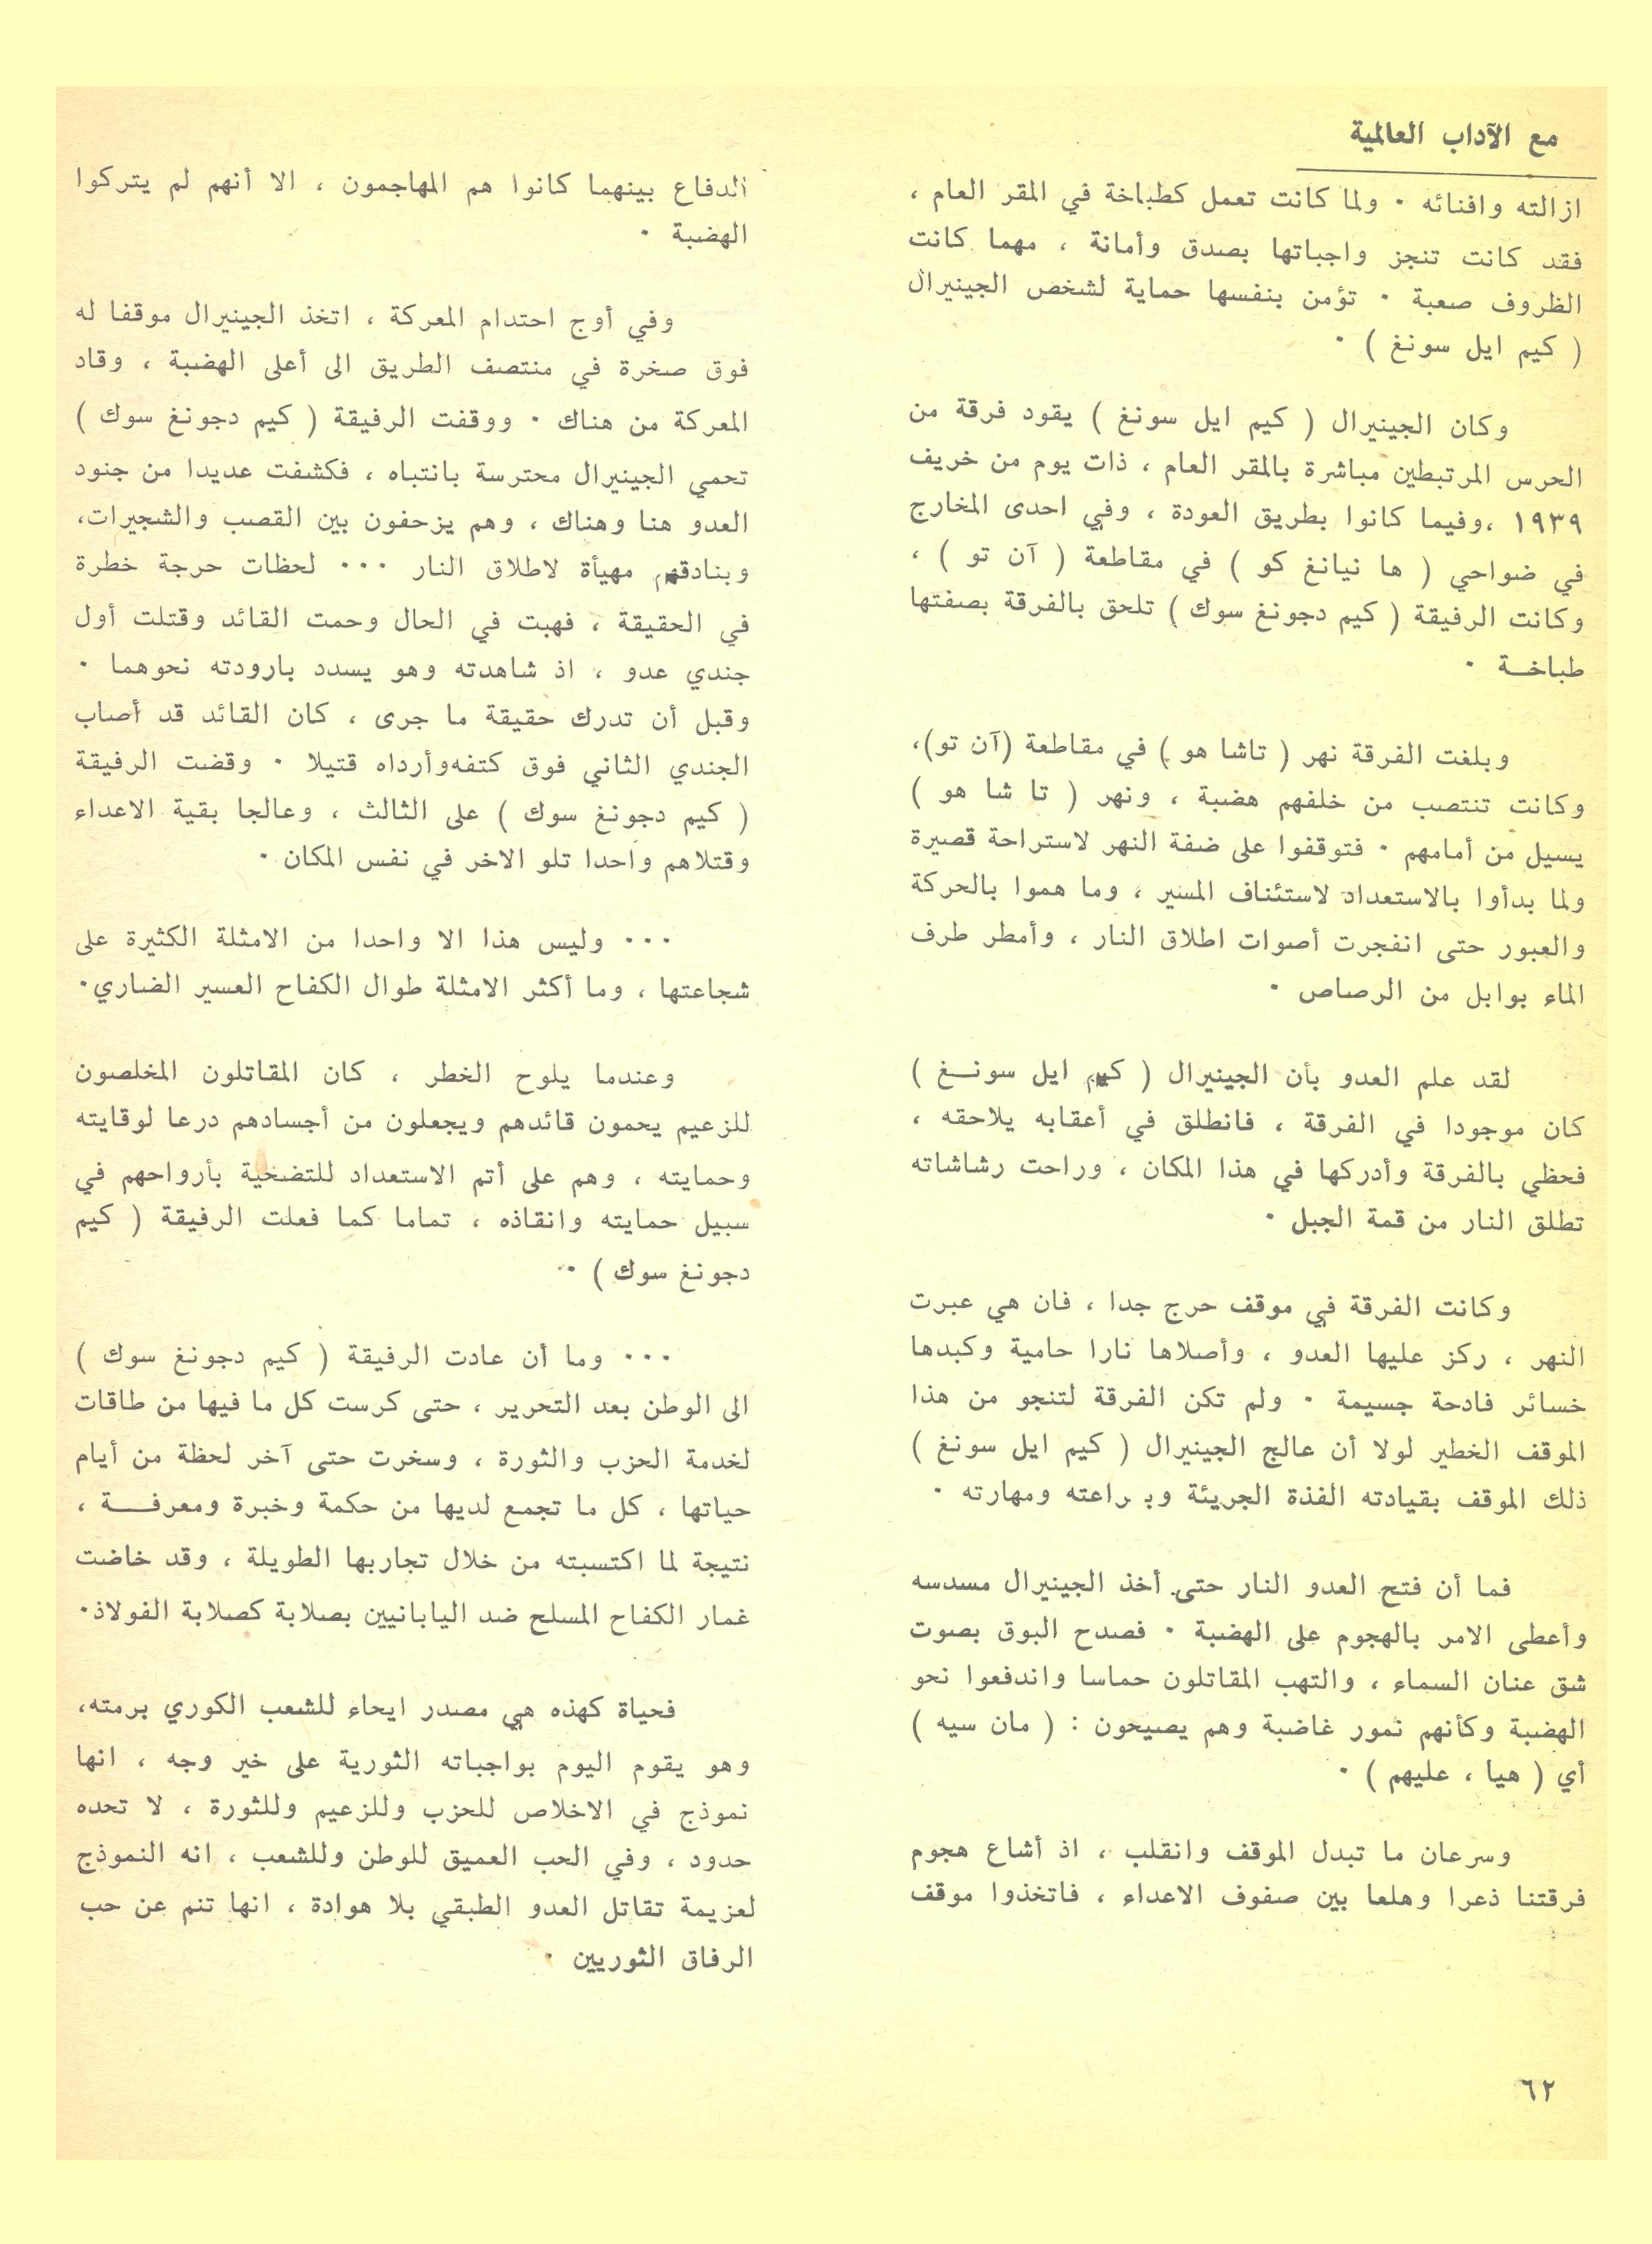 مع الآداب العالمية
ازالته وافنائه ٠ ولما كانت تعمل كطباخة في المقر العام ،
فقد كانت تنجز واجباتها بصدق وأمانة ، مهما كانت
الظروف صعبة ٠ تؤمن بنفسها حماية لشخص الجينيرال
( كيم ايل سونغ ) ٠
وكان الجينيرال ( كيم ايل سونغ ) يقود فرقة من
الحرس المرتبطين مباشرة بالمقر العام ، ذات يوم من خريف
١٩٣٩ ،وفيما كانوا بطريق العودة ، وفي احدى المخارج
في ضواحي ( ها نيانغ كو ) في مقاطعة ( آن تو ) ،
وكانت الرفيقة ( كيم دجونغ سوك ) تلحق بالفرقة بصفتها
طباخــة ٠
وبلغت الفرقة نهر ( تاشا هو ) في مقاطعة (آن تو)،
وكانت تنتصب من خلفهم هضبة ، ونهر ( تا شا هو )
يسيل من أمامهم ٠ فتوقفوا على ضفة النهر لاستراحة قصيرة
ولما بدأوا بالاستعداد لاستئناف المسير ، وما هموا بالحركة
والعبور حتى انفجرت أصوات اطلاق النار ، وأمطر طرف
الماء بوابل من الرصاص ٠
لقد علم العدو بأن الجينيرال ( كيم ايل سونــغ )
كان موجودا في الفرقة ، فانطلق في أعقابه يلاحقه ،
فحظي بالفرقة وأدركها في هذا المكان ، وراحت رشاشاته
تطلق النار من قمة الجبل ٠
وكانت الفرقة في موقف حرج جدا ، فان هي عبرت
النهر ، ركز عليها العدو ، وأصلاها نارا حامية وكبدها
خسائر فادحة جسيمة ٠ ولم تكن الفرقة لتنجو من هذا
الموقف الخطير لولا أن عالج الجينيرال ( كيم ايل سونغ )
ذلك الموقف بقيادته الفذة الجريئة وبراعته ومهارته ٠
فما أن فتح العدو النار حتى أخذ الجينيرال مسدسه
وأعطى الامر بالهجوم على الهضبة ٠ فصدح البوق بصوت
شق عنان السماء ، والتهب المقاتلون حماسا واندفعوا نحو
الهضبة وكأنهم نمور غاضبة وهم يصيحون : ( مان سيه )
أي ( هيا ، عليهم ) ٠
وسرعان ما تبدل الموقف وانقلب ، اذ أشاع هجوم
فرقتنا ذعرا وهلعا بين صفوف الاعداء ، فاتخذوا موقف
الدفاع بينهما كانوا هم المهاجمون ، الا أنهم لم يتركوا
الهضبة ٠
وفي أوج احتدام المعركة ، اتخذ الجينيرال موقفا له
فوق صخرة في منتصف الطريق الى أعلى الهضبة ، وقاد
المعركة من هناك ٠ ووقفت الرفيقة ( كيم دجونغ سوك )
تحمي الجينيرال محترسة بانتباه ، فكشفت عديدا من جنود
العدو هنا وهناك ، وهم يزحفون بين القصب والشجيرات،
وبنادقهم مهيأة لاطلاق النار ٠٠٠ لحظات حرجة خطرة
في الحقيقة ، فهبت في الحال وحمت القائد وقتلت أول
جندي عدو ، اذ شاهدته وهو يسدد بارودته نحوهما ٠
وقبل أن تدرك حقيقة ما جرى ، كان القائد قد أصاب
الجندي الثاني فوق كتفه وأرداه قتيلا ٠ وقضت الرفيقة
( كيم دجونغ سوك ) على الثالث ، وعالجا بقية الاعداء
وقتلاهم واحدا تلو الاخر في نفس المكان ٠
٠٠٠ وليس هذا الا واحدا من الامثلة الكثيرة على
شجاعتها ، وما أكثر الامثلة طوال الكفاح العسير الضاري٠
وعندما يلوح الخطر ، كان المقاتلون المخلصون
للزعيم يحمون قائدهم ويجعلون من أجسادهم درعا لوقايته
وحمايته ، وهم على أتم الاستعداد للتضحية بأرواحهم في
سبيل حمايته وانقاذه ، تماما كما فعلت الرفيقة ( كيم
دجونغ سوك ) ٠
٠٠٠ وما أن عادت الرفيقة ( كيم دجونغ سوك )
الى الوطن بعد التحرير ، حتى كرست كل ما فيها من طاقات
لخدمة الحزب والثورة ، وسخرت حتى آخر لحظة من أيام
حياتها ، كل ما تجمع لديها من حكمة وخبرة ومعرفــة ،
نتيجة لما اكتسبته من خلال تجاربها الطويلة ، وقد خاضت
غمار الكفاح المسلح ضد اليابانيين بصلابة كصلابة الفولاذ٠
فحياة كهذه هي مصدر ايحاء للشعب الكوري برمته،
وهو يقوم اليوم بواجباته الثورية على خير وجه ، انها
نموذج في الاخلاص للحزب وللزعيم وللثورة ، لا تحده
حدود ، وفي الحب العميق للوطن وللشعب ، انه النموذج
لعزيمة تقاتل العدو الطبقي بلا هوادة ، انها تنم عن حب
الرفاق الثوريين ٠
٦٢